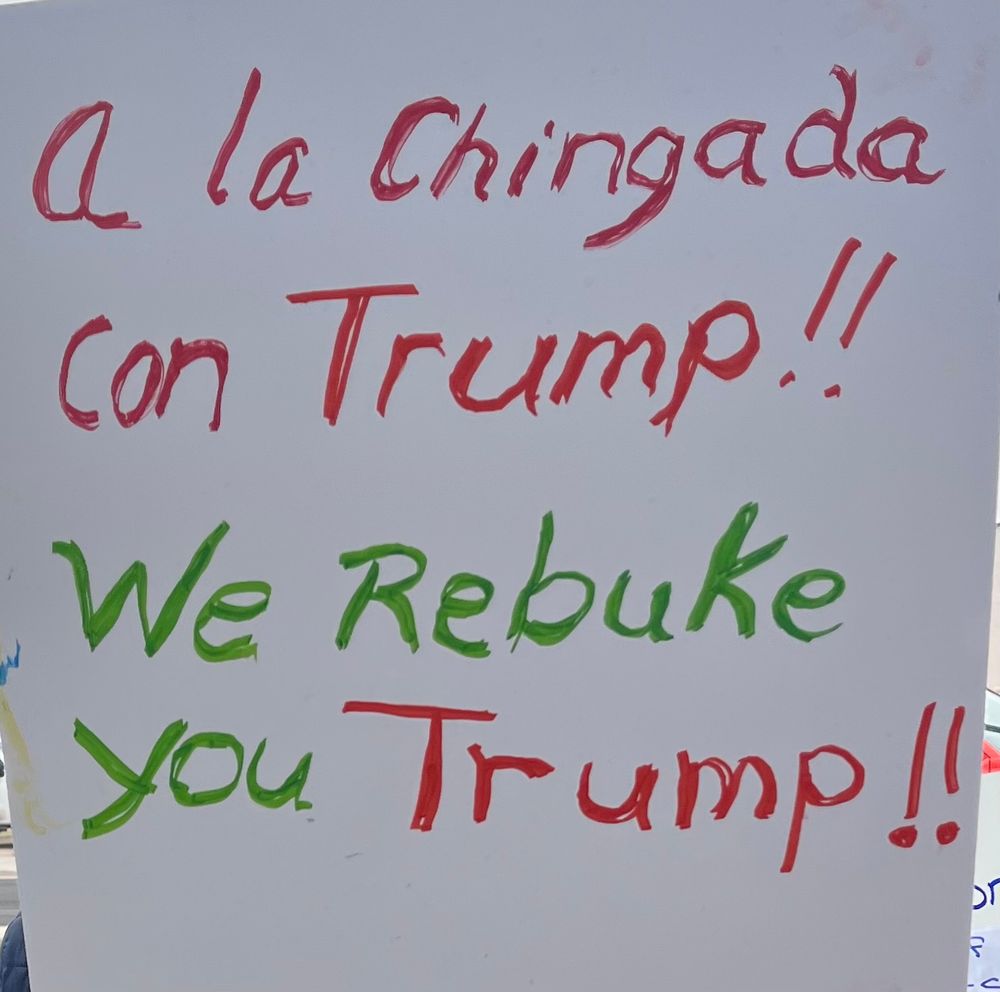 A la Chingada
con Trump!!
We Rebuke
you Trump!!
or